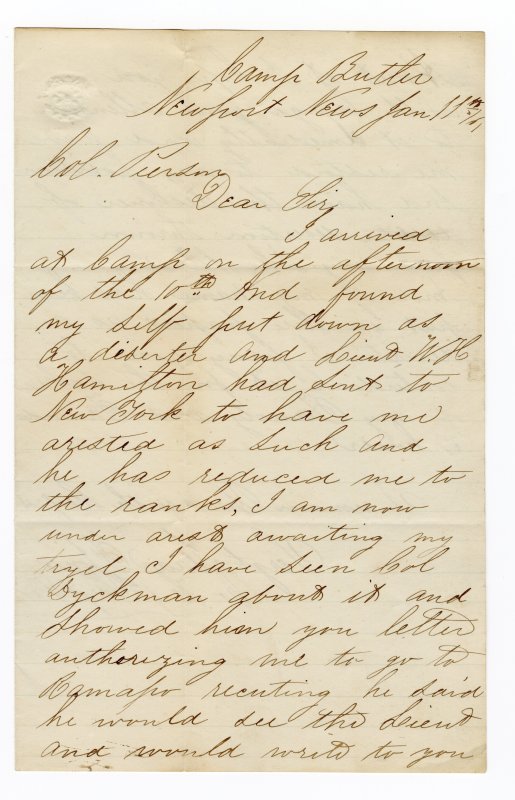 Camp Butler
Newport News Jan 11th
Col. Pierson
Dear Sir,
I arrived
at Camp on the afternoon
of the 10th And found
my self put down as
a diserter and Lieut, W. H
Hamilton had sent to
New York to have me
arested as such and
he has reduced me to
the ranks, I am now
under arest awaiting my
tryel I have seen Col
Dyckman about it and
showed him you letter
authorizing me to go to
Ramapo recuting he said
he would see the Lieut
and would write to you